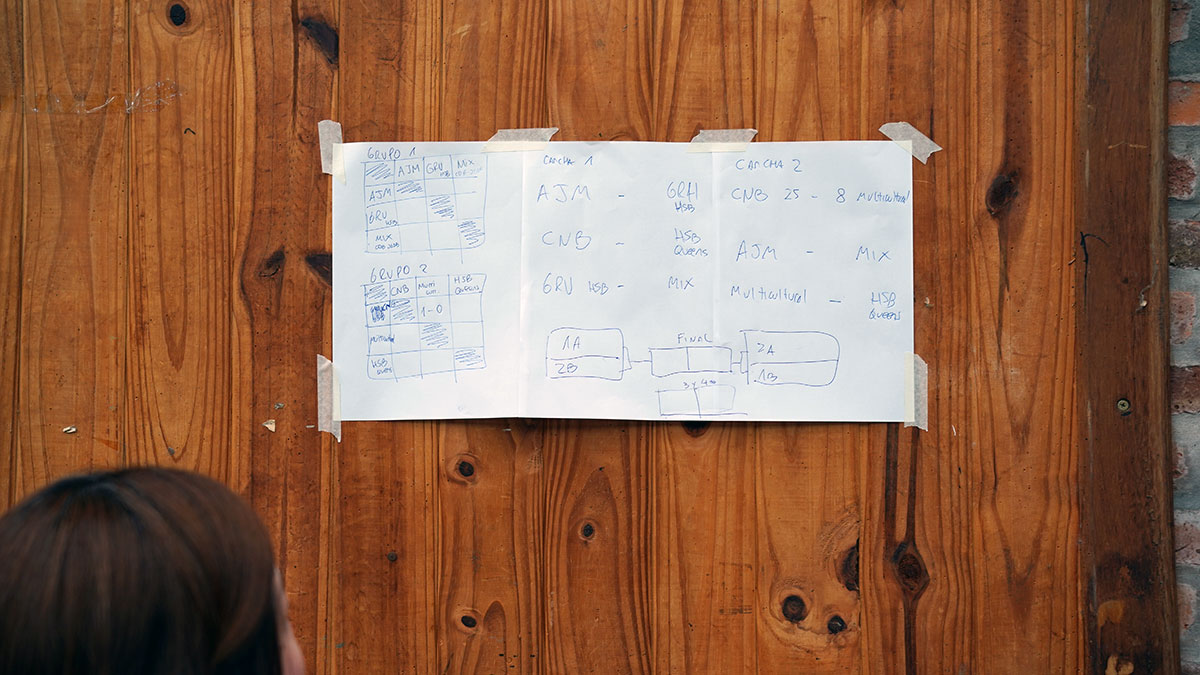 GRUPO 1
AJM GRU HSB MIX
AJM
GRU HSB
MIX
GRUPO 2
CNB Multi HSB QUEENS
1-0
HSB
CANCHA 1
AJM - GRU HSB
CNB - HSB QUEENS
GRU HSB - MIX
CANCHA 2
CNB 25 - 8 Multicultural
AJM - MIX
Multicultural - HSB QUEENS
1A
2B
FINAL
2A
1B
3 y 4to